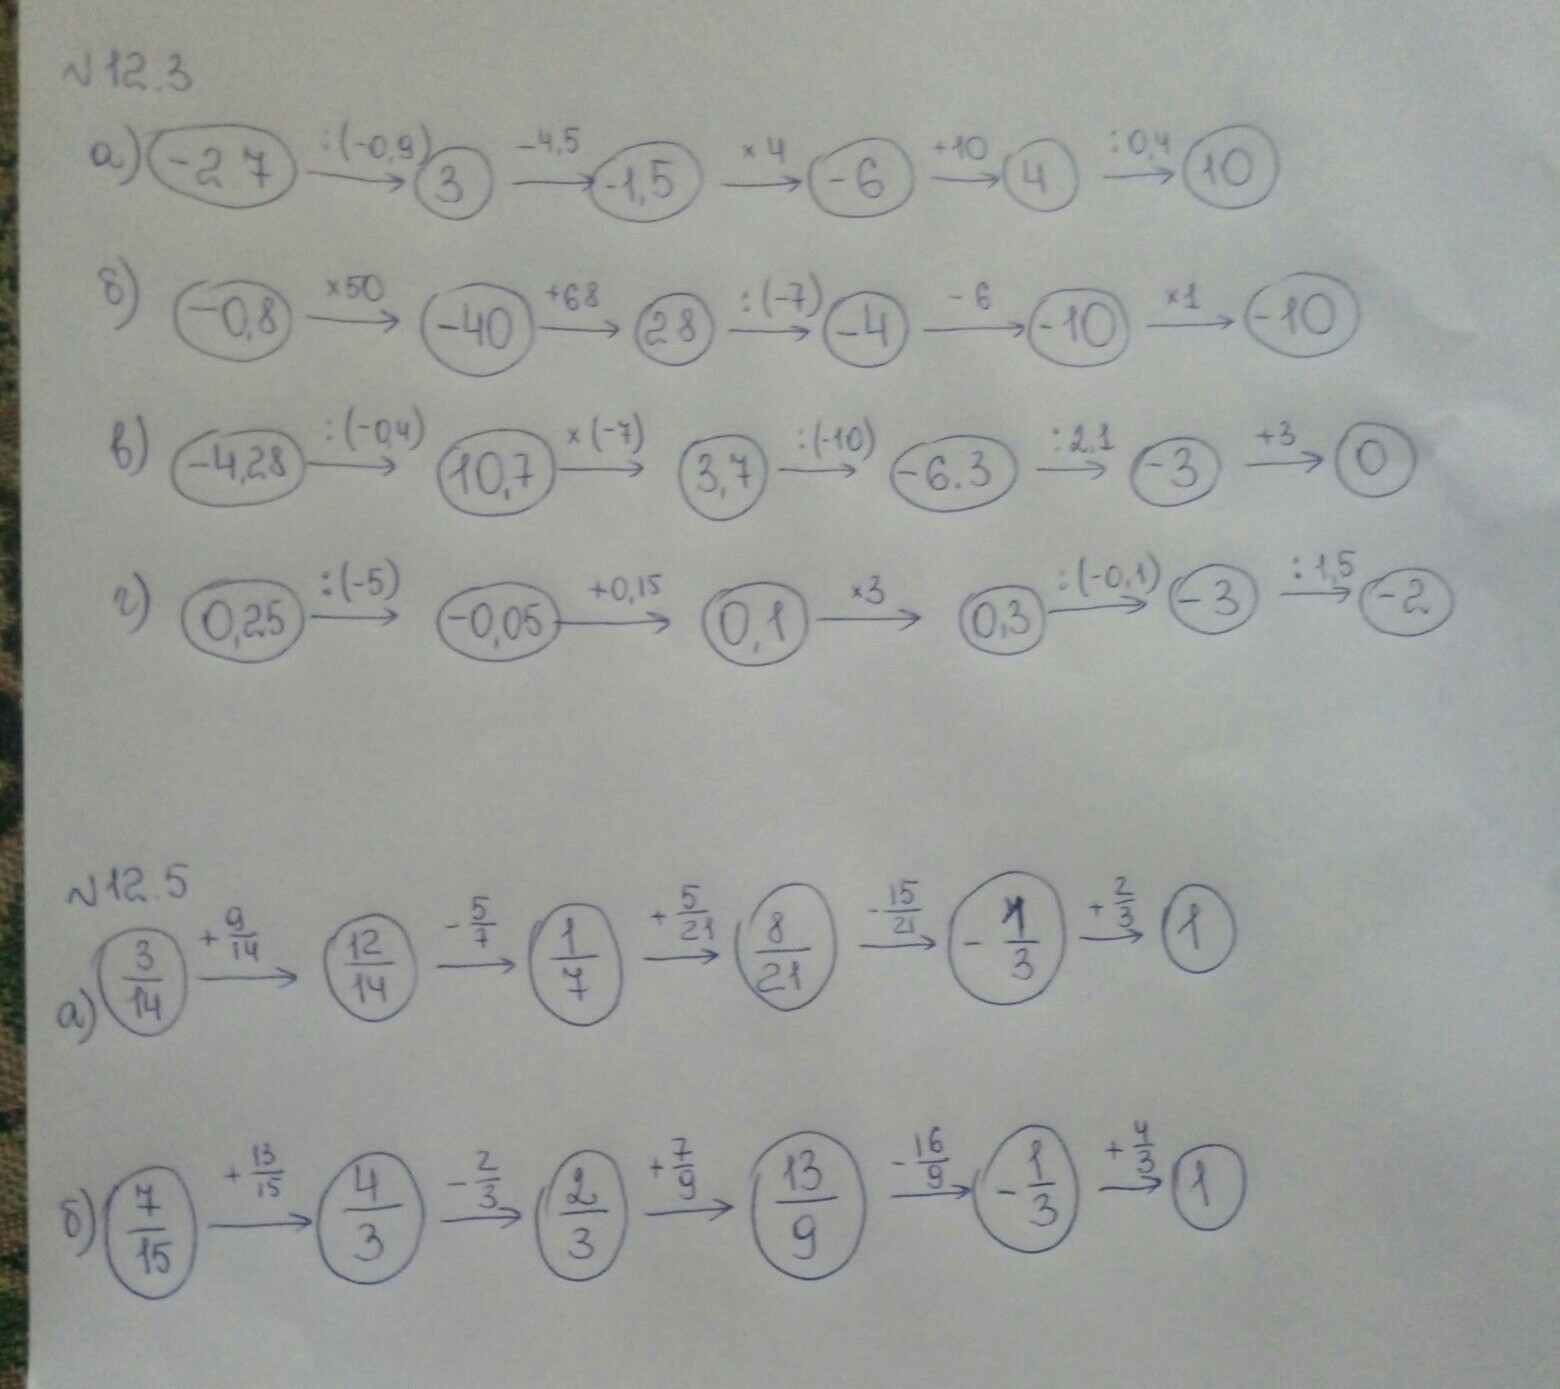 №12.3
а) -2,7 :(-0,9)→ 3 -4,5→ -1,5 ×4→ -6 +10→ 4 :0,4→ 10
б) -0,8 ×50→ -40 +68→ 28 :(-7)→ -4 -6→ -10 ×1→ -10
в) -4,28 :(-0,4)→ 10,7 ×(-7)→ 3,7 :(-10)→ -6.3 :2,1→ -3 +3→ 0
г) 0,25 :(-5)→ -0,05 +0,15→ 0,1 ×3→ 0,3 :(-0,1)→ -3 :1,5→ -2
№12.5
а) 3/14 +9/14→ 12/14 -5/7→ 1/7 +5/21→ 8/21 -15/21→ -1/3 +2/3→ 1
б) 7/15 +13/15→ 4/3 -2/3→ 2/3 +7/9→ 13/9 -16/9→ -1/3 +4/3→ 1